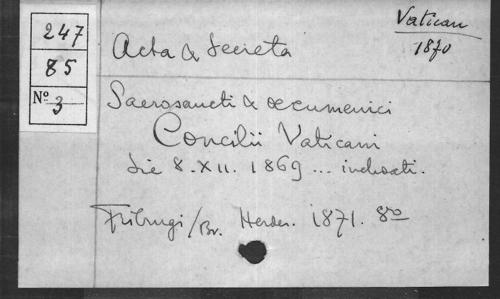 247
85
No 3
Vatican
1870
Acta & Decreta
Sacrosancti & oecumenici
Concilii Vaticani
die 8. XII. 1869 ... inchoati.
Friburgi/Br. Herder. 1871. 8o